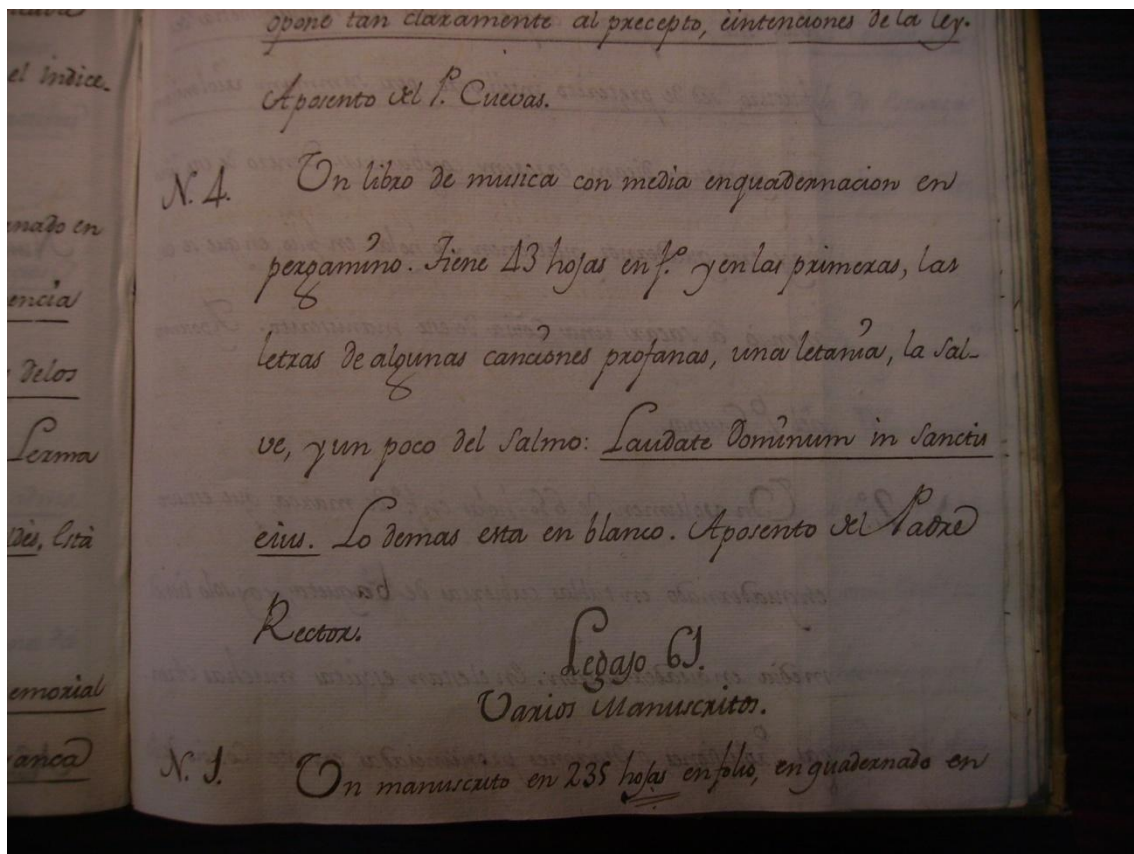 el indice.
nado en
encia
delos
Lerma
des, Està
emorial
anca
opone tan claramente al precepto, èintenciones de la ley.
Aposento del P. Cuevas.
N. 4. Un libro de musica con media enquadernacion en
pergamino. Tiene 43 hojas en f.º y en las primeras, las
letras de algunas canciònes profanas, una letanìa, la Sal-
ve, y un poco del Salmo: Laudate Domìnum in Sanctis
eius. Lo demas esta en blanco. Aposento del Padre
Rector.
Legajo 61.
Varios Manuscritos.
N. 1. Un manuscrito en 235 hojas en folio, enquadernado en